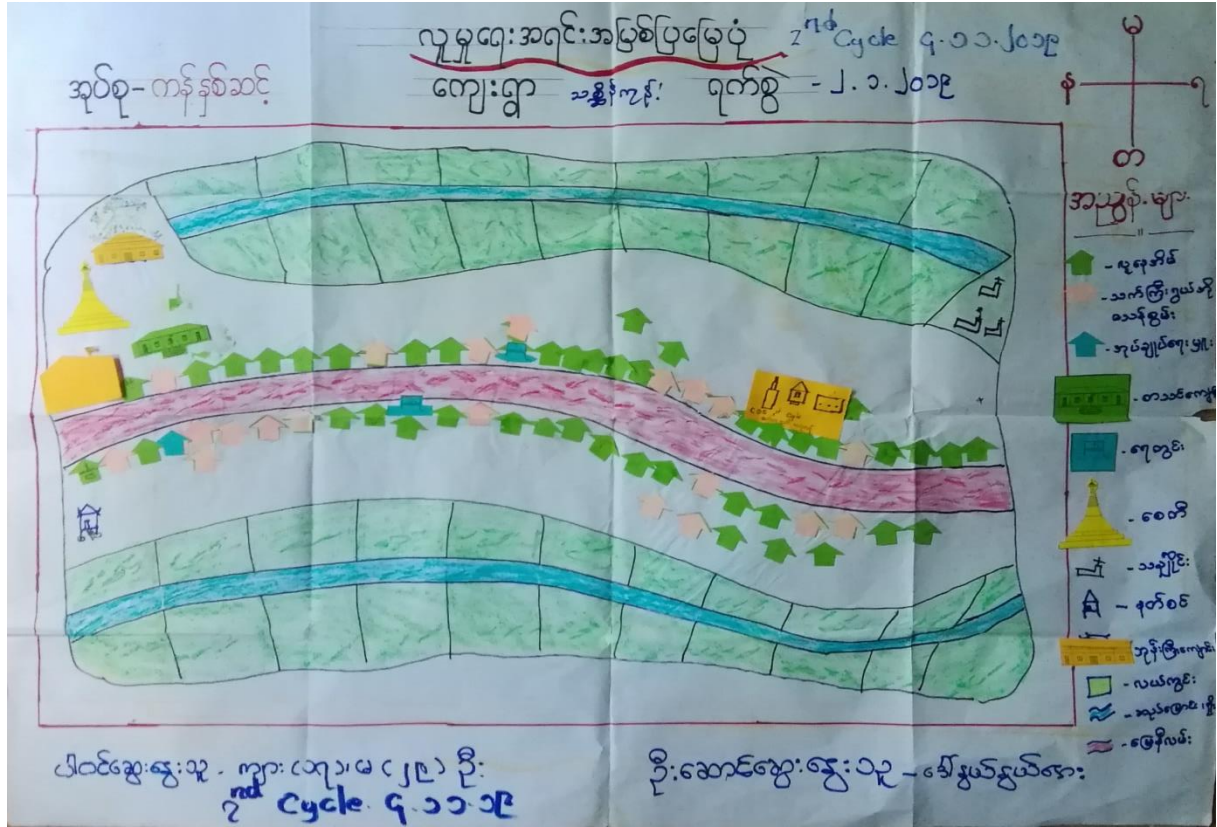 လူမှုရေးအရင်းအမြစ်ပြမြေပုံ 2nd Cycle ၄.၁၁.၂၀၁၉
အုပ်စု - ကန်နှစ်ဆင့်
ကျေးရွာ ရက်စွဲ - ၂.၁.၂၀၁၉
မ
န ရ
တ
အညွှန်းများ
- လူနေအိမ်
- အုပ်ချုပ်ရေးမှူး
- စာသင်ကျောင်း
- ရေတွင်း
- စေတီ
- သင်္ချိုင်း
- နတ်စင်
ဘုန်းကြီးကျောင်း
- လယ်ကွင်း
- မြေနီလမ်း
ပါဝင်ဆွေးနွေးသူ - ကျား (၁၇)၊ မ (၂၉) ဦး
2nd Cycle ၄.၁၁.၁၉
ဦးဆောင်ဆွေးနွေးသူ - ဒေါ်နွယ်နွယ်အေး